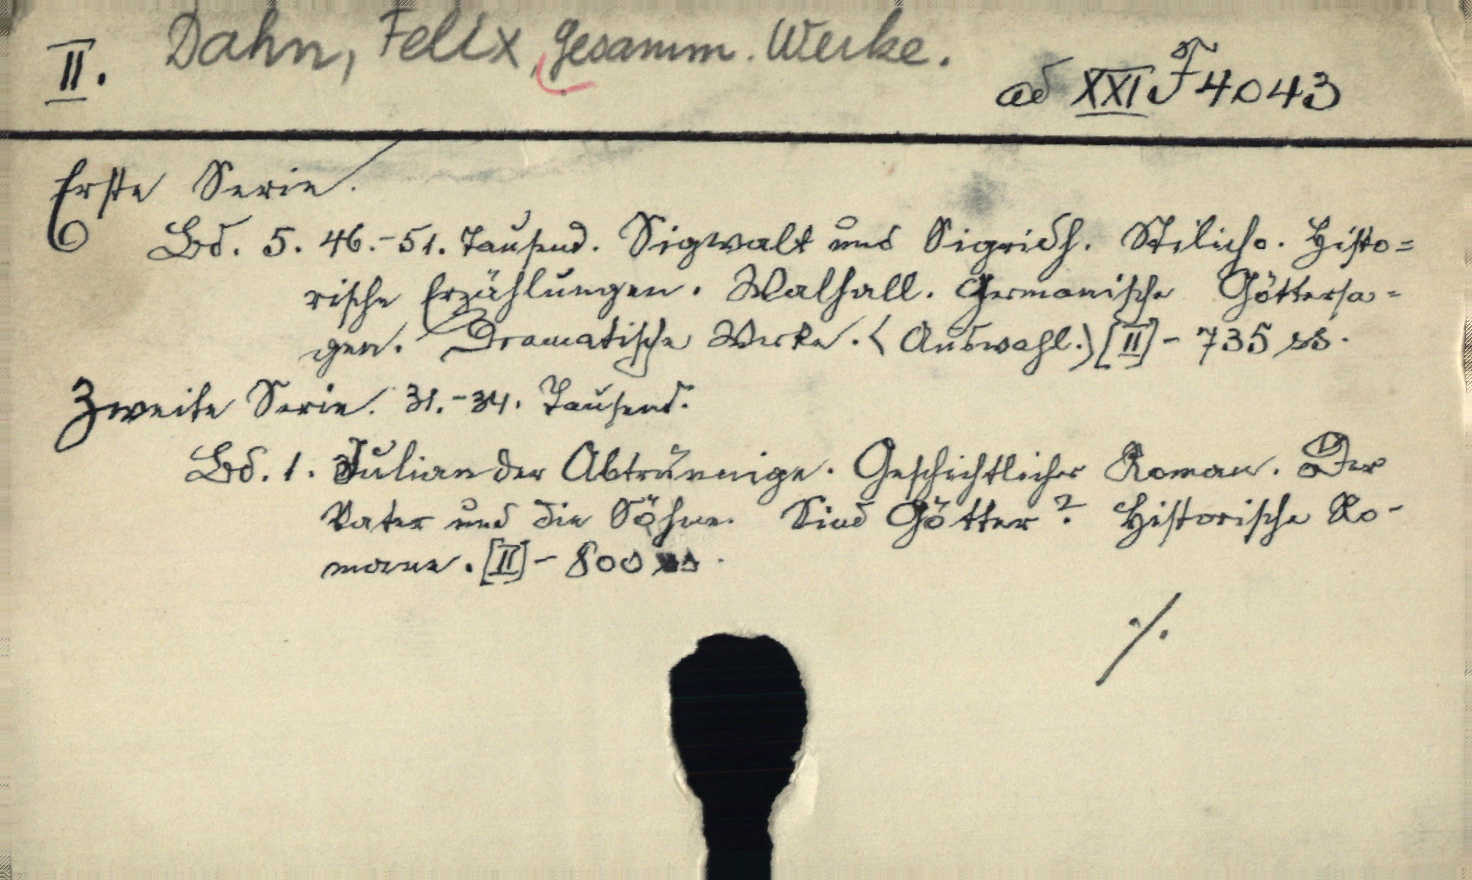 II. Dahn, Felix, gesamm. Werke.
ad XXI F 4043
Erste Serie.
Bd. 5. 46.-51. Tausend. Sigwalt und Sigridh. Stilicho. Histo=
rische Erzählungen. Walhall. Germanische Göttersa=
gen. Dramatische Werke. <Auswahl.> [II] - 735 ss.
Zweite Serie. 31.-34. Tausend.
Bd. 1. Julian der Abtrünnige. Geschichtlicher Roman. Der
Vater und die Söhne. Sind Götter? Historische Ro-
mane. [II] - 800 ss.
./.